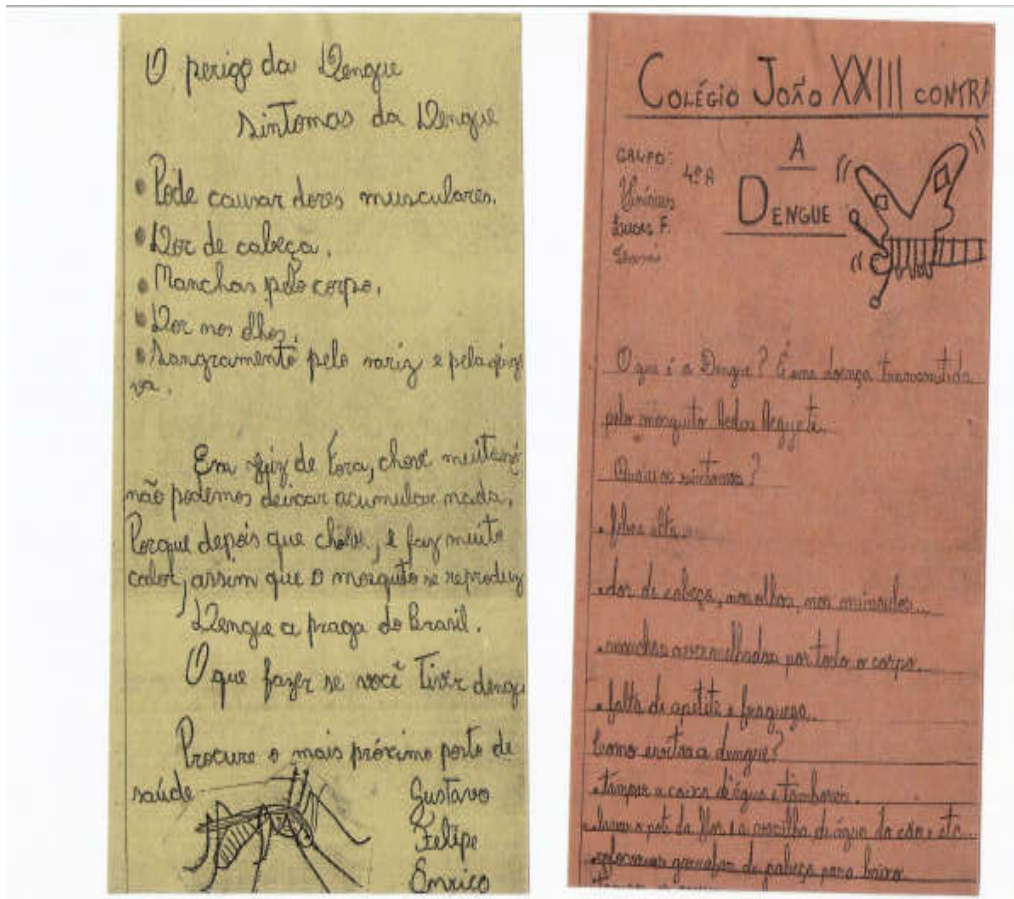 O perigo da Dengue
Sintomas da Dengue
• Pode causar dores musculares.
• Dor de cabeça.
• Manchas pelo corpo.
• Dor nos olhos.
• Sangramento pelo nariz e pela gengi
va.
Em Juiz de Fora, chove muito
não podemos deixar acumular nada.
Porque depois que chove, e faz muito
calor, assim que o mosquito se reproduz
Dengue a praga do Brasil.
O que fazer se você Tiver dengu
Procure o mais próximo posto de
saúde
Gustavo
Felipe
Enrico
COLÉGIO JOÃO XXIII CONTRA
A
DENGUE
GRUPO: 4ª A
Vinícius
Lucas F.
O que é a Dengue? É uma doença transmitida
pelo mosquito Aedes Aegypti.
Quais os sintomas?
• febre alta.
• dor de cabeça, nos olhos, nos músculos...
• manchas avermelhadas por todo o corpo.
• falta de apetite e fraqueza.
Como evitar a dengue?
• tampar a caixa d'água e tambores.
• lavar o pote da flor e a vasilha de água do cão e etc...
• colocar as garrafas de cabeça para baixo.